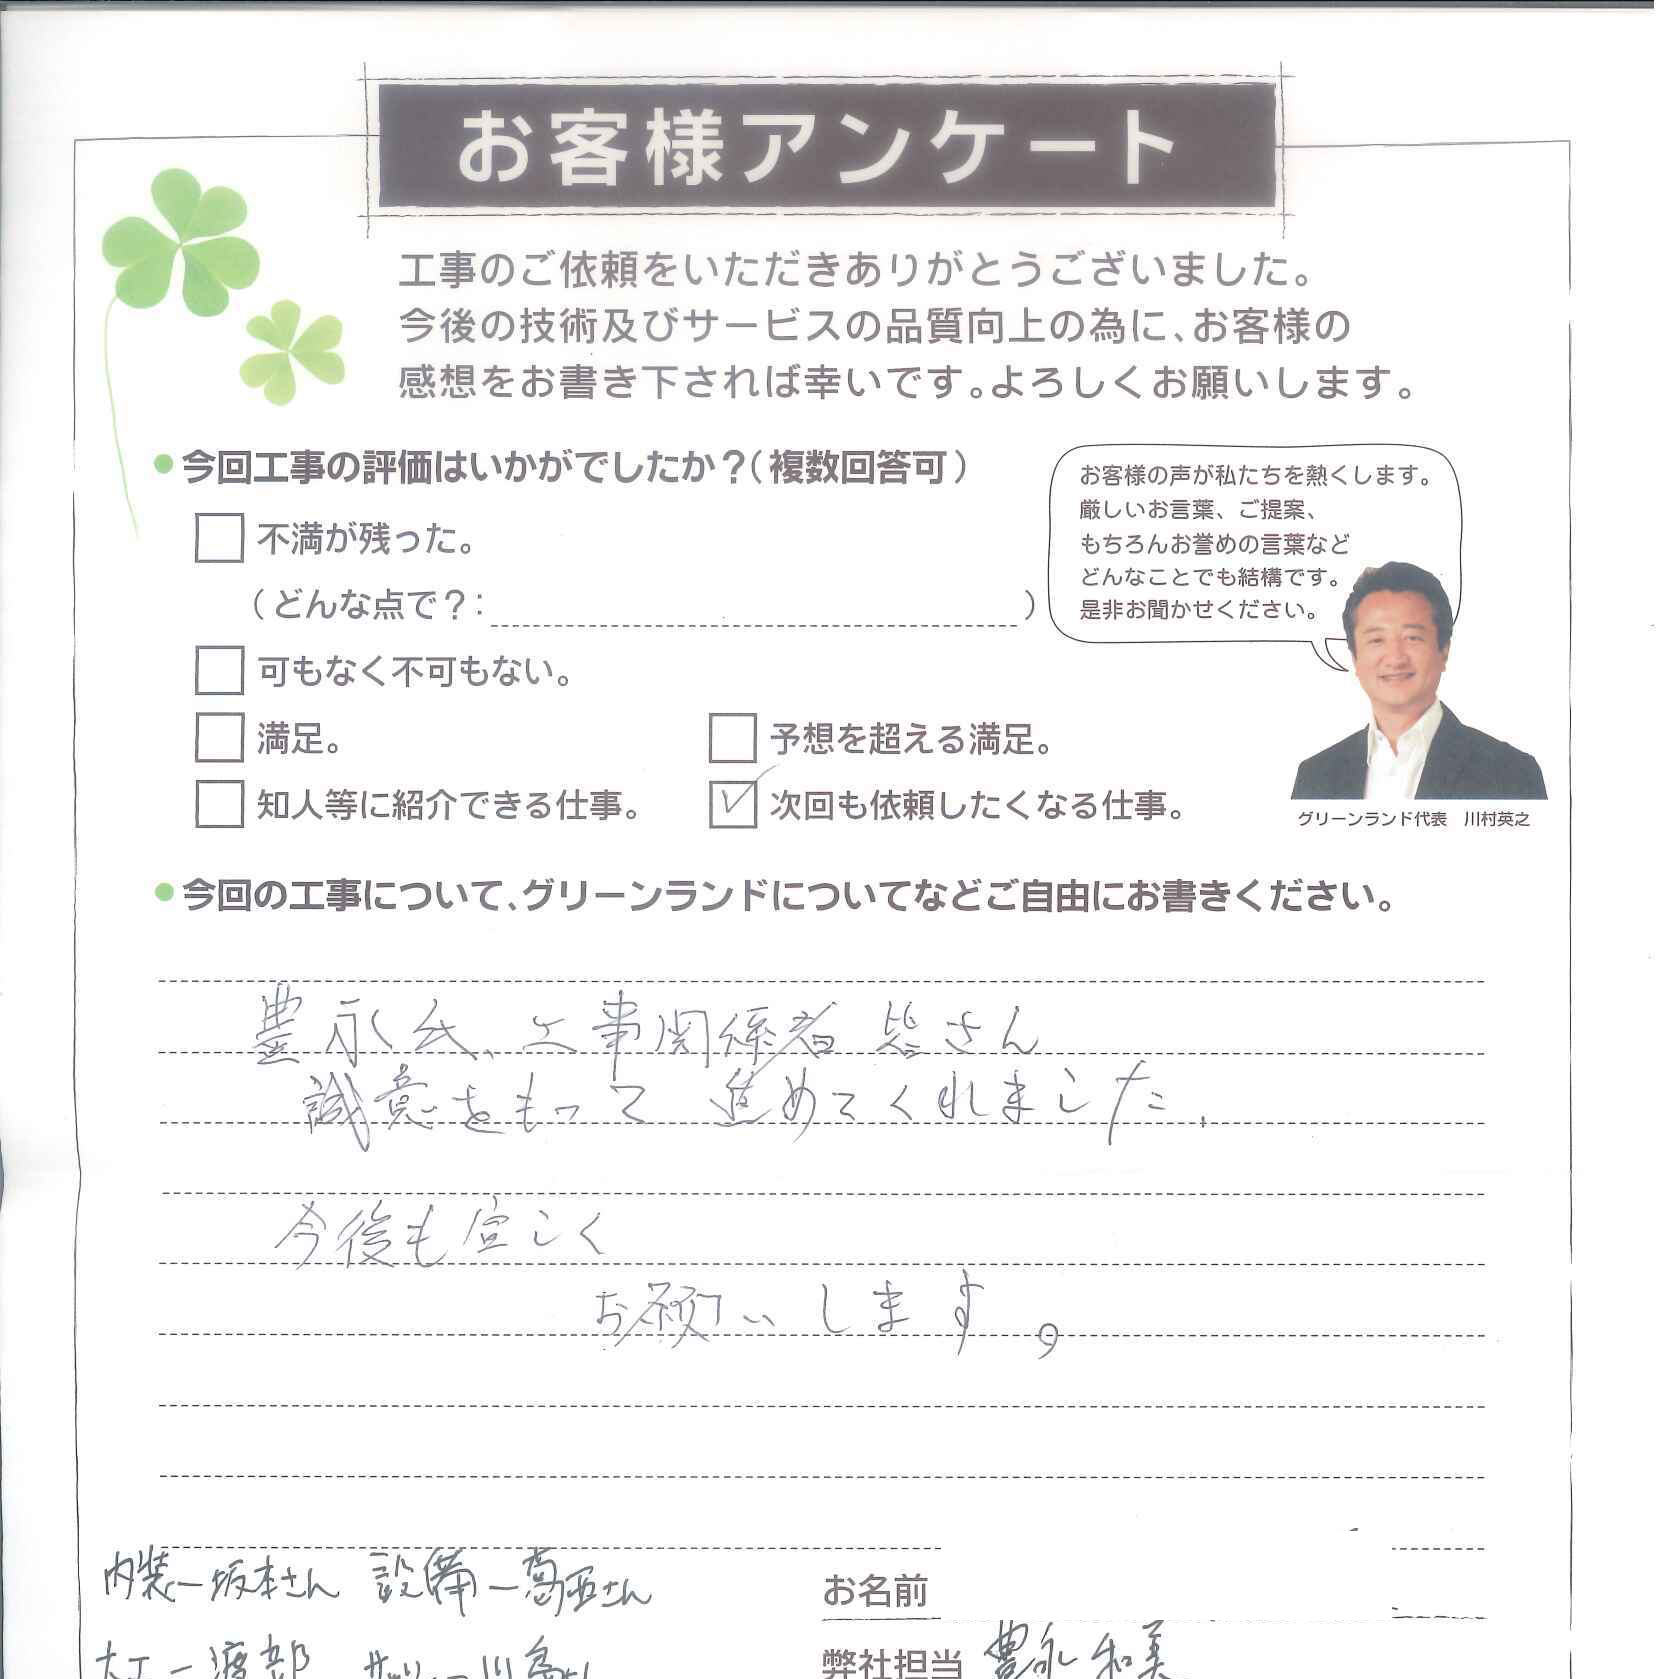 お客様アンケート
工事のご依頼をいただきありがとうございました。
今後の技術及びサービスの品質向上の為に、お客様の
感想をお書き下されば幸いです。よろしくお願いします。
●今回工事の評価はいかがでしたか？（複数回答可）
不満が残った。
（どんな点で？：　）
可もなく不可もない。
満足。
予想を超える満足。
知人等に紹介できる仕事。
次回も依頼したくなる仕事。
お客様の声が私たちを熱くします。
厳しいお言葉、ご提案、
もちろんお誉めの言葉など
どんなことでも結構です。
是非お聞かせください。
グリーンランド代表　川村英之
●今回の工事について、グリーンランドについてなどご自由にお書きください。
豊永氏、工事関係者 皆さん
誠意をもって 進めてくれました.
今後も宜しく
お願い します。
内装ー坂本さん 設備ー葛西さん
大工ー渡部
お名前
弊社担当 豊永和美